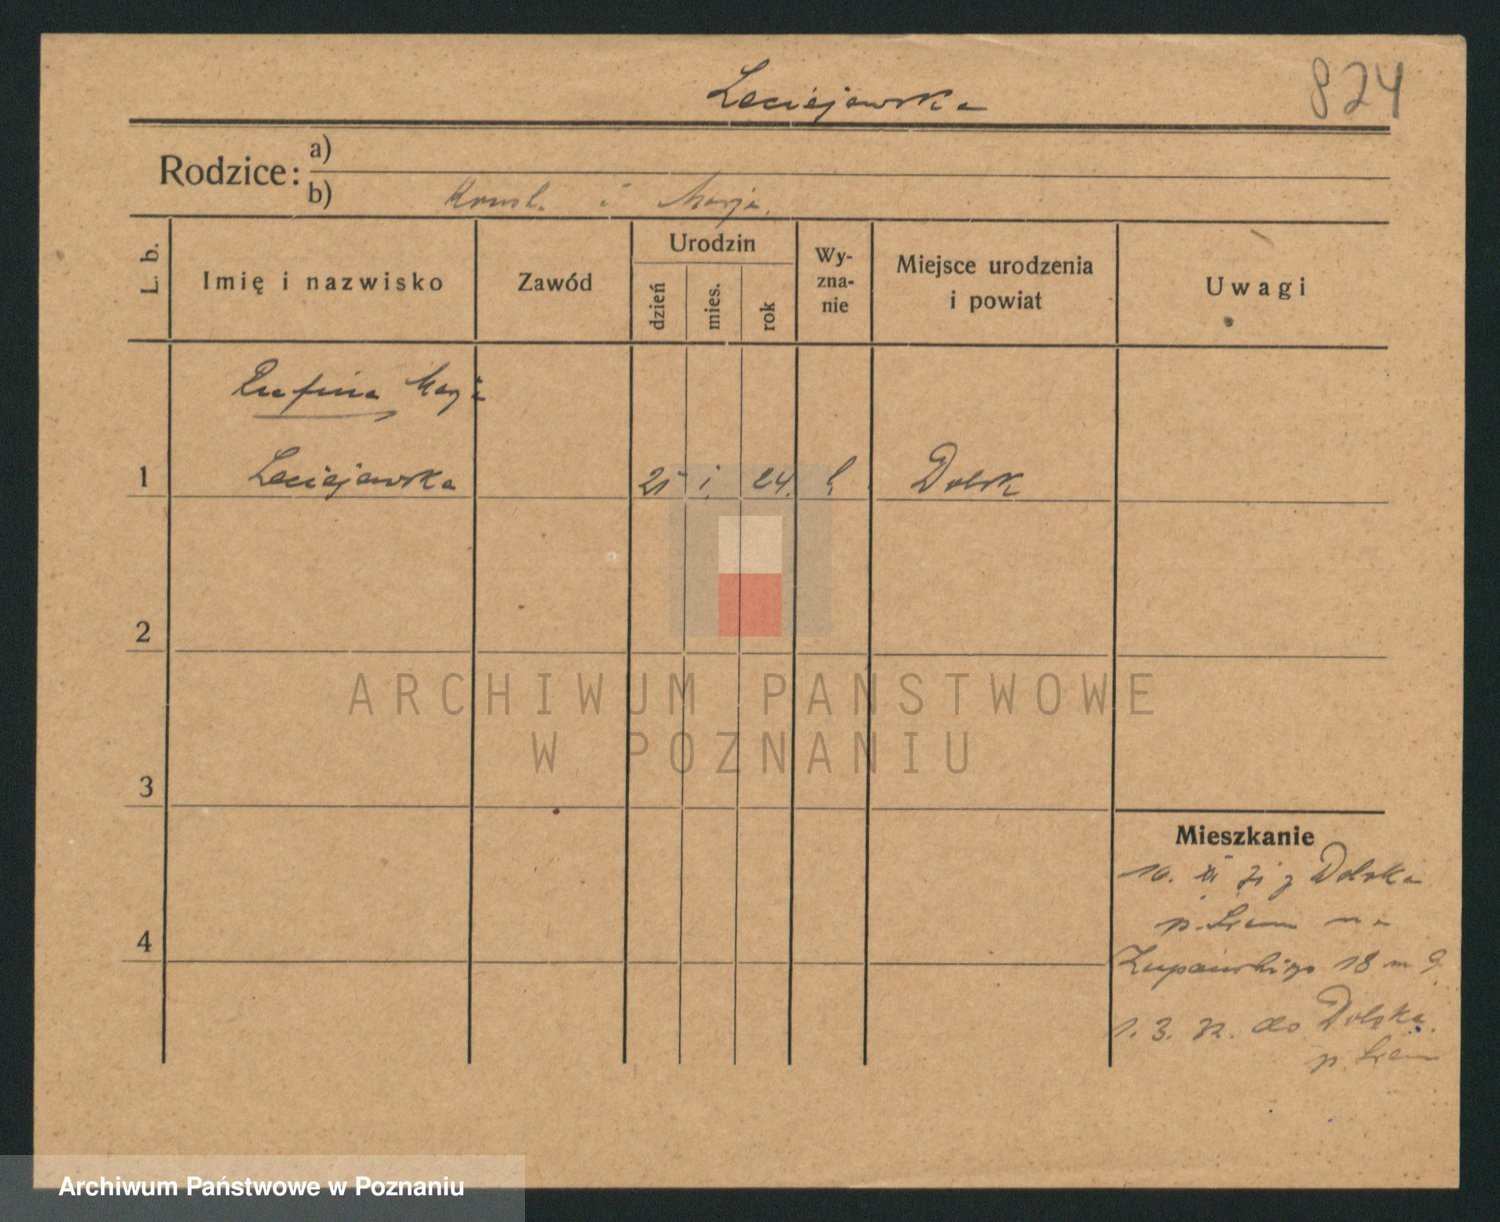 Leciejewska
824
Rodzice: a)
b) i Marja.
L. b.
Imię i nazwisko
Zawód
Urodzin
dzień
mies.
rok
Wy-
zna-
nie
Miejsce urodzenia
i powiat
Uwagi
Rufina Marja
1 Leciejewska 24. Dolsk
2
ARCHIWUM PAŃSTWOWE
W POZNANIU
3
Mieszkanie
10. XI z Dolska
p. Śrem na
4
Żupańskiego 18 m 9.
1. 3. 32. do Dolska.
p. Śrem
Archiwum Państwowe w Poznaniu